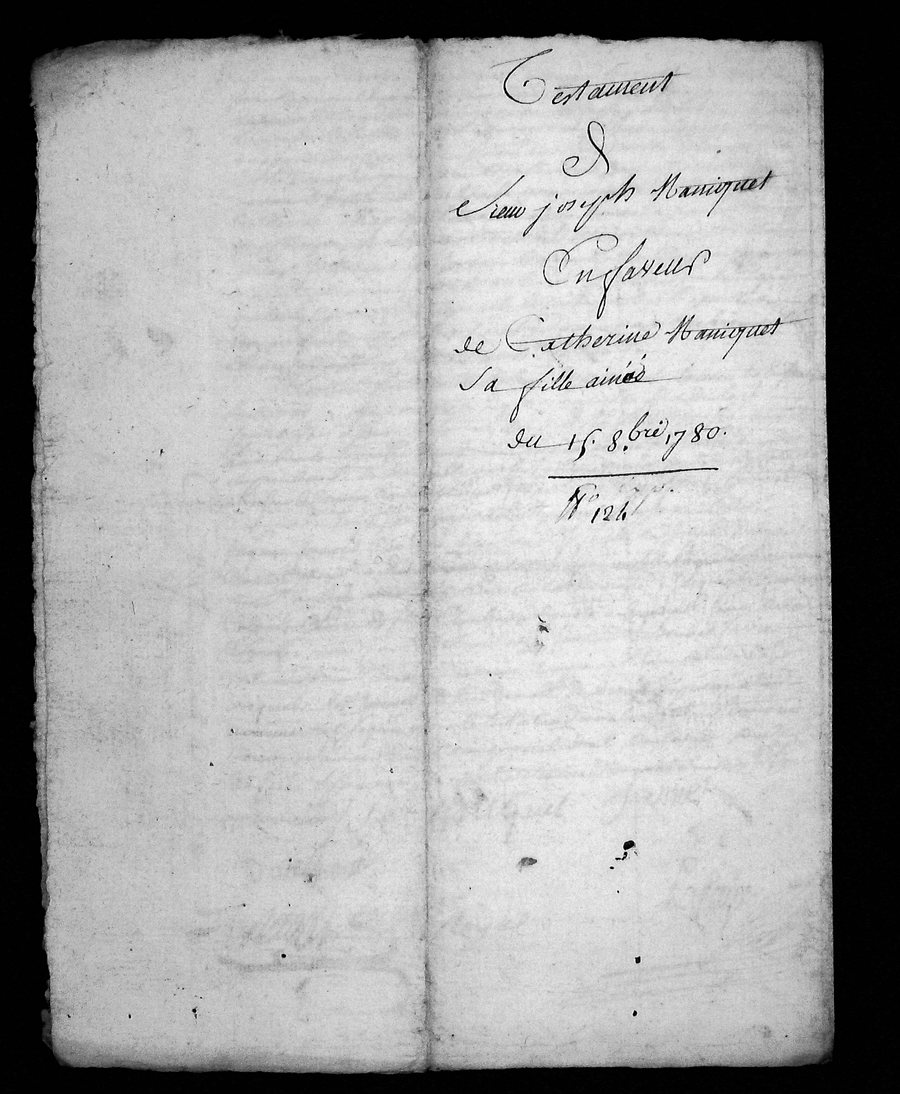 Testament
D
Sieur joseph Maniquet
En faveur
de Catherine Maniquet
sa fille ainée
du 15. 8.bre 1780.
N° 124